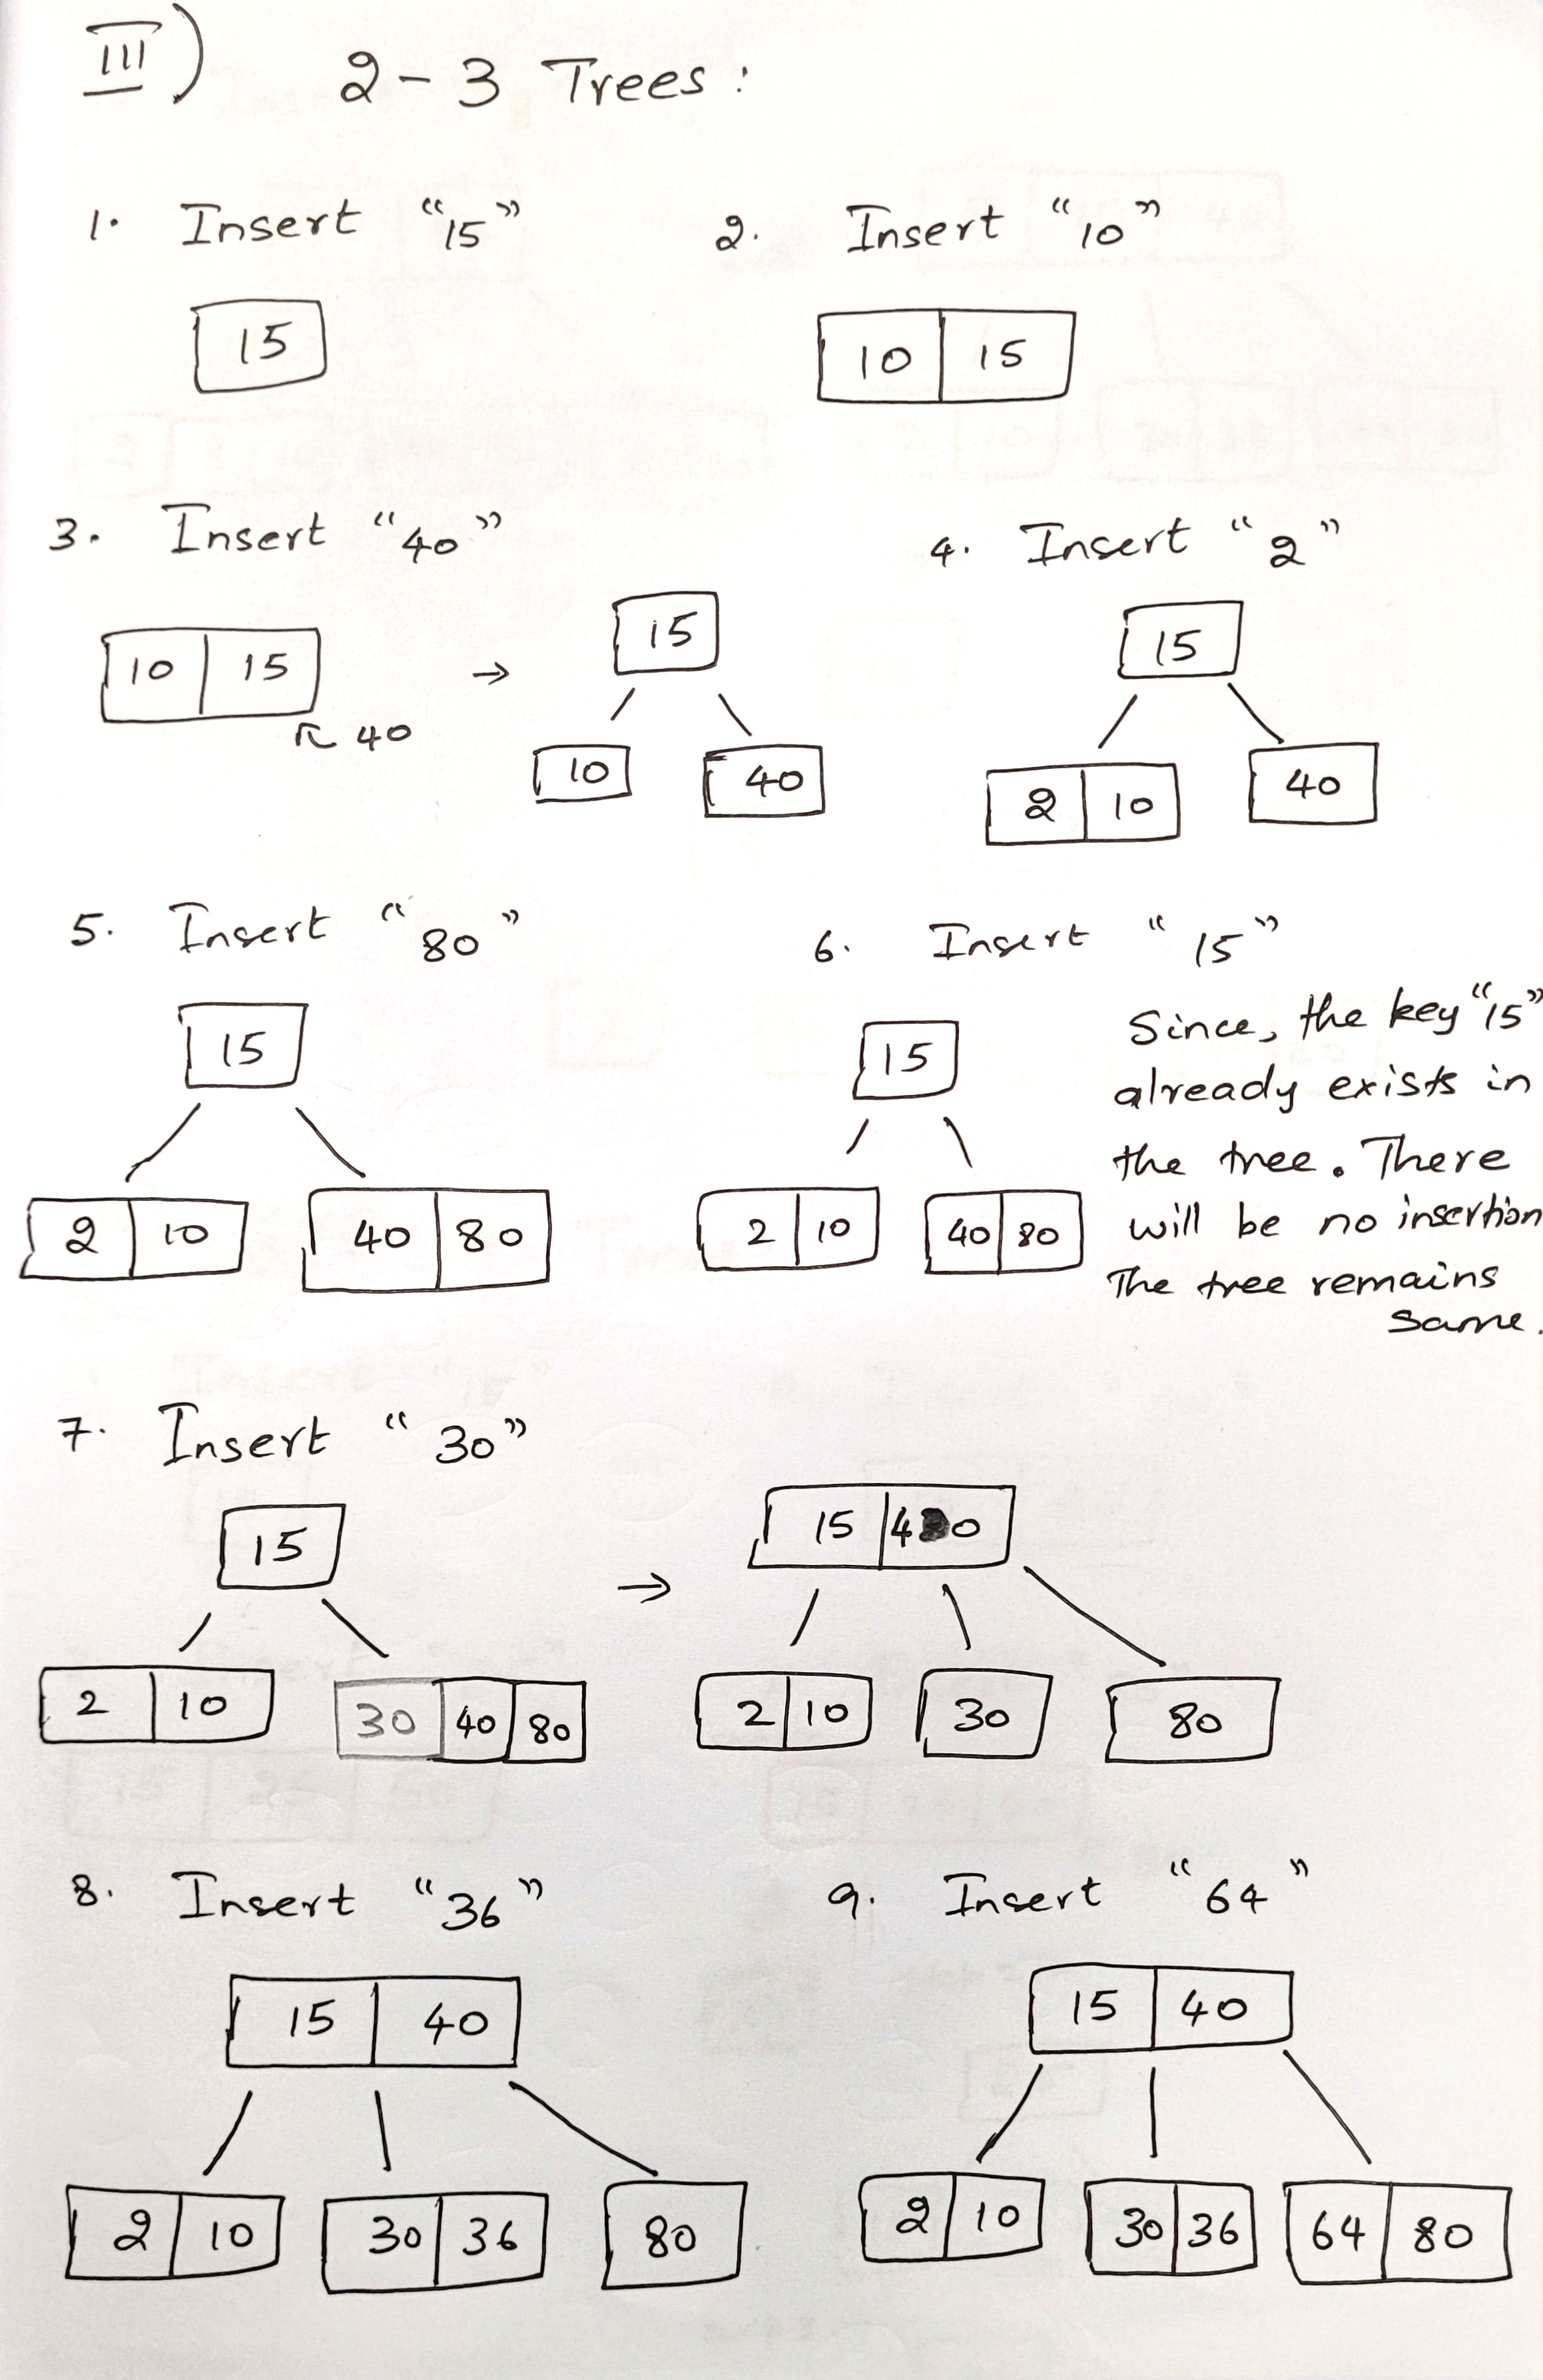 III) 2-3 Trees:
1. Insert "15"
15
2. Insert "10"
10 15
3. Insert "40"
10 15
40
→
15
10 40
4. Insert "2"
15
2 10 40
5. Insert "80"
15
2 10 40 80
6. Insert "15"
15
2 10 40 80
Since, the key "15"
already exists in
the tree. There
will be no insertion
The tree remains
same.
7. Insert "30"
15
2 10 30 40 80
→
15 40
2 10 30 80
8. Insert "36"
15 40
2 10 30 36 80
9. Insert "64"
15 40
2 10 30 36 64 80